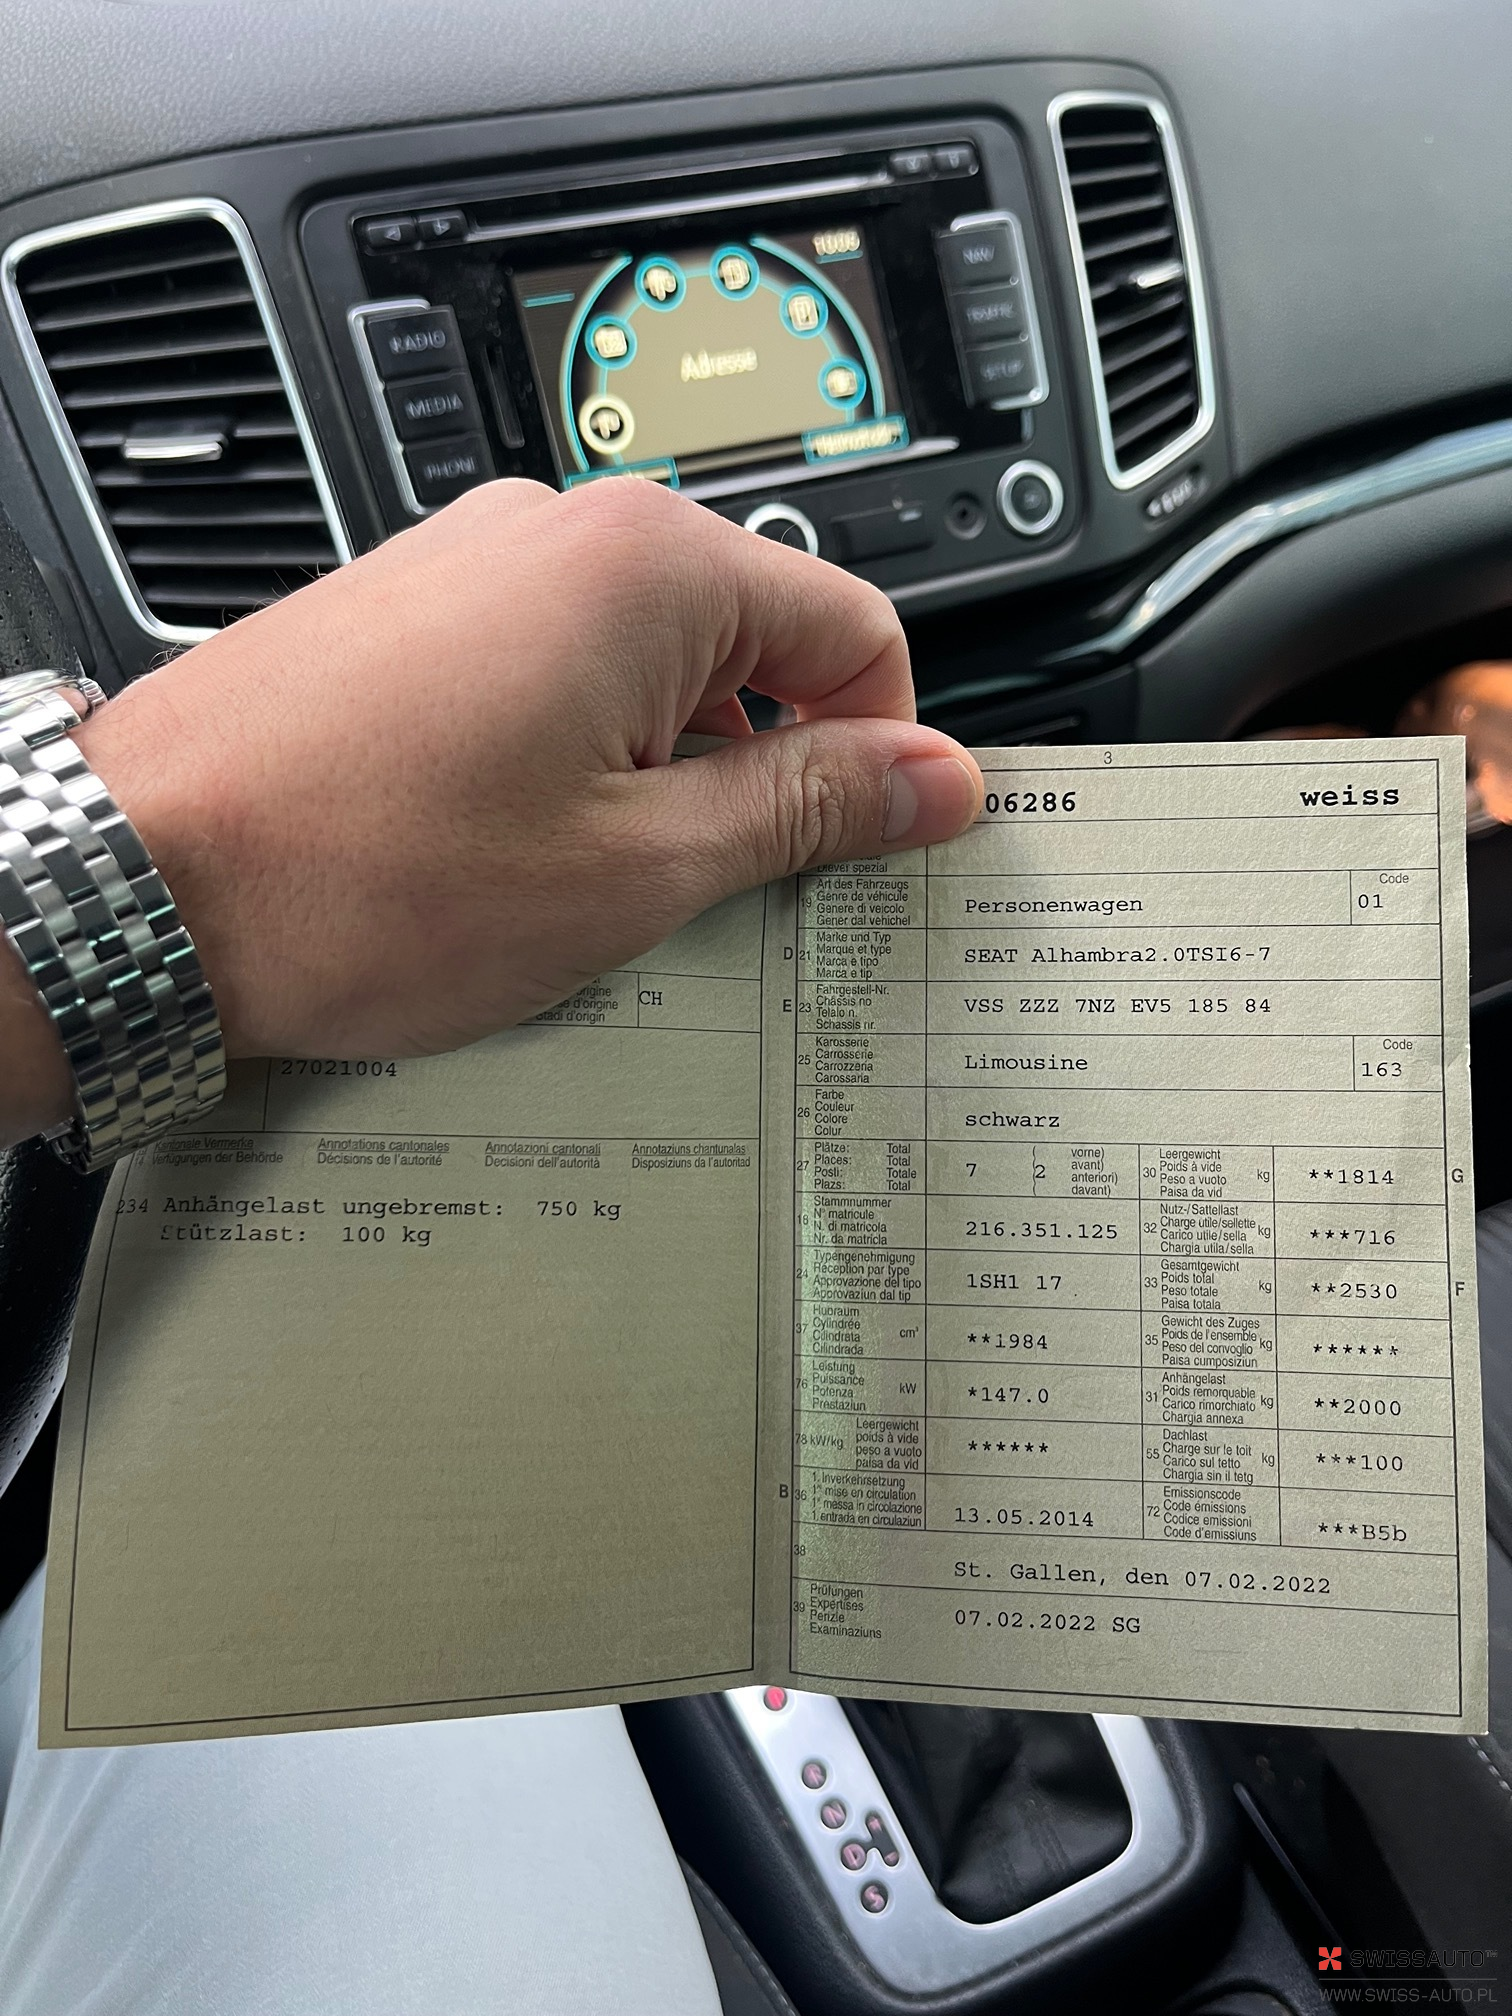 RADIO
MEDIA
PHONE
Adresse
NAV
TRAFFIC
SETUP
3
06286 weiss
spezial
19 Art des Fahrzeugs
Genre de véhicule
Genere di veicolo
Gener dal vehichel
Personenwagen
Code
01
D 21 Marke und Typ
Marque et type
Marca e tipo
Marca e tip
SEAT Alhambra2.0TSI6-7
E 23 Fahrgestell-Nr.
Châssis no
Telaio n.
Schassis nr.
VSS ZZZ 7NZ EV5 185 84
25 Karosserie
Carrosserie
Carrozzeria
Carossaria
Limousine
Code
163
26 Farbe
Couleur
Colore
Colur
schwarz
27 Plätze: Total
Places: Total
Posti: Totale
Plazs: Total
7 (2 vorne)
avant)
anteriori)
( davant)
30 Leergewicht
Poids à vide
Peso a vuoto
Paisa da vid
kg
**1814
G
18 Stammnummer
N° matricule
N. di matricola
Nr. da matricla
216.351.125
32 Nutz-/Sattellast
Charge utile/sellette
Carico utile/sella
Chargia utila/sella
kg
***716
24 Typengenehmigung
Réception par type
Approvazione del tipo
Approvaziun dal tip
1SH1 17
33 Gesamtgewicht
Poids total
Peso totale
Paisa totala
kg
**2530
F
37 Hubraum
Cylindrée
Cilindrata
Cilindrada
cm³
**1984
35 Gewicht des Zuges
Poids de l'ensemble
Peso del convoglio
Paisa cumposiziun
kg
******
76 Leistung
Puissance
Potenza
Prestaziun
kW
*147.0
31 Anhängelast
Poids remorquable
Carico rimorchiato
Chargia annexa
kg
**2000
78 kW/kg Leergewicht
poids à vide
peso a vuoto
paisa da vid
******
55 Dachlast
Charge sur le toit
Carico sul tetto
Chargia sin il tetg
kg
***100
B 36 1. Inverkehrsetzung
1re mise en circulation
1a messa in circolazione
1. entrada en circulaziun
13.05.2014
72 Emissionscode
Code émissions
Codice emissioni
Code d'emissiuns
***B5b
38
St. Gallen, den 07.02.2022
39 Prüfungen
Expertises
Perizie
Examinaziuns
07.02.2022 SG
origine
d'origine
Stadi d'origin
CH
27021004
Kantonale Vermerke Annotations cantonales Annotazioni cantonali Annotaziuns chantunalas
Verfügungen der Behörde Décisions de l'autorité Decisioni dell'autorità Disposiziuns da l'autoritad
234 Anhängelast ungebremst: 750 kg
Stützlast: 100 kg
R
N
D
S
SWISSAUTO™
WWW.SWISS-AUTO.PL